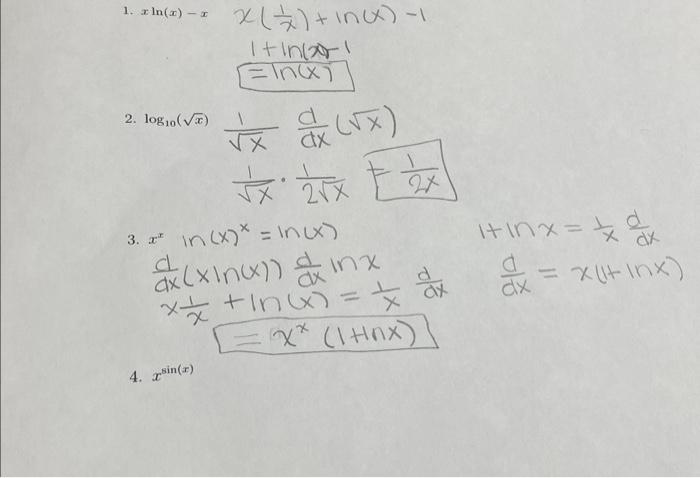 1. x ln(x) − x x(1/x) + ln(x) - 1
1 + ln(x) - 1
= ln(x)
2. log₁₀(√x) 1/√x d/dx (√x)
1/√x · 1/2√x = 1/2x
3. xˣ ln(x)ˣ = ln(x)
d/dx (x ln(x)) d/dx ln x
x 1/x + ln(x) = 1/x d/dx
= xˣ (1 + ln x)
1 + ln x = 1/x d/dx
d/dx = x(1 + ln x)
4. x^sin(x)